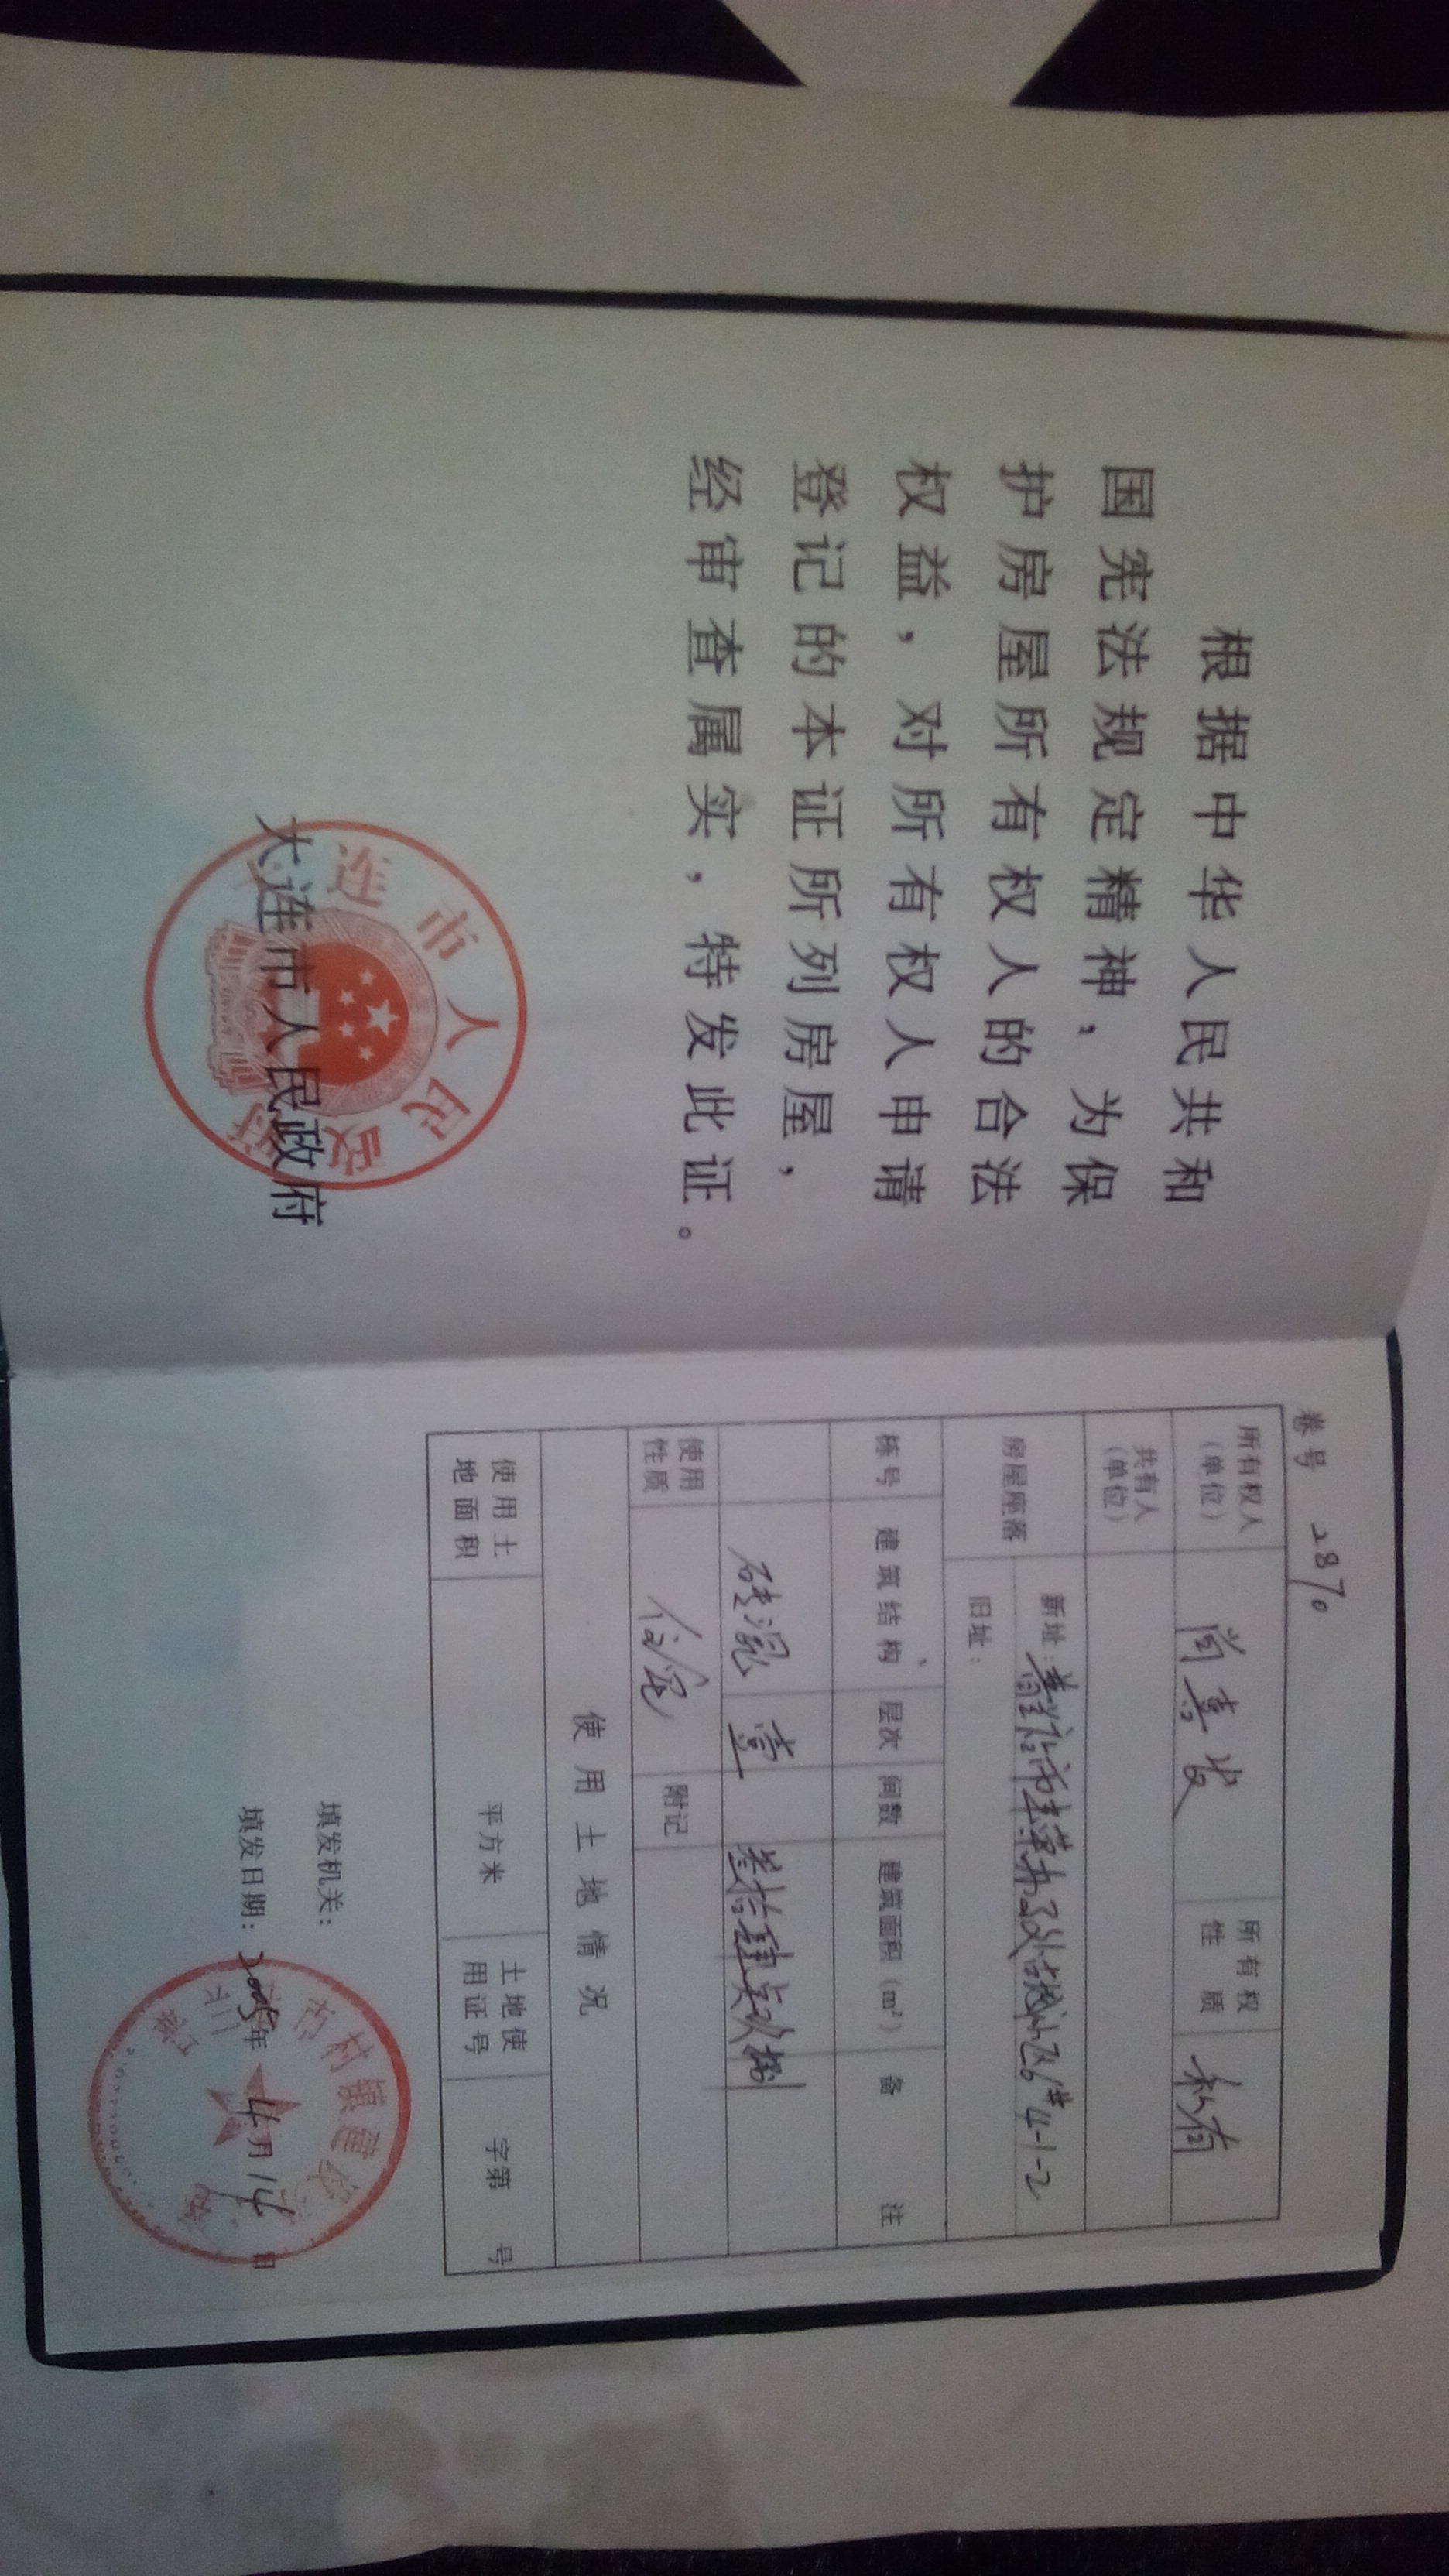 根据中华人民共和
国宪法规定精神，为保
护房屋所有权人的合法
权益，对所有权人申请
登记的本证所列房屋，
经审查属实，特发此证。
大连市人民政府
大连市人民政府
卷号 2870
所有权人
(单位)
所有权
性质
私有
共有人
(单位)
房屋座落
新址：普兰店市丰荣办事处古城小区6#4-1-2
旧址：
栋号 建筑结构 层次 间数 建筑面积(m²) 备注
砖混 壹 叁拾肆点玖捌
使用
性质
住宅
附记
使用土地情况
使用土
地面积
平方米
土地使
用证号
字第 号
填发机关：
填发日期：2005年4月14日
村镇建设